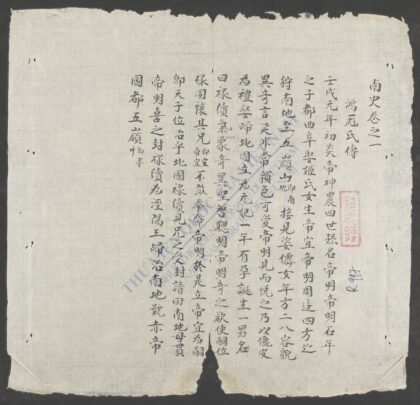 南史卷之一
鴻厖氏傳
壬戌元年初炎帝神農四世孫名帝明帝明石年
之子都曲阜娶姬氏女生帝宜帝明周遊四方巡
狩南地至五嶺山接見婺僊女年方二八容貌
異奇言美非常顏色可愛帝明見而悅之乃以儀文
為禮娶歸北國立為元妃一年有孕誕生一男名
曰祿續氣象奇異聖智聰明帝明奇之欲使嗣位
祿固讓其兄不敢奉命帝明於是立帝宜為嗣
即天于位治于北國祿續見兄之受封請回南地母貫
帝明喜之封祿續為涇陽王歸治南地號赤帝
國都五嶺
R.997